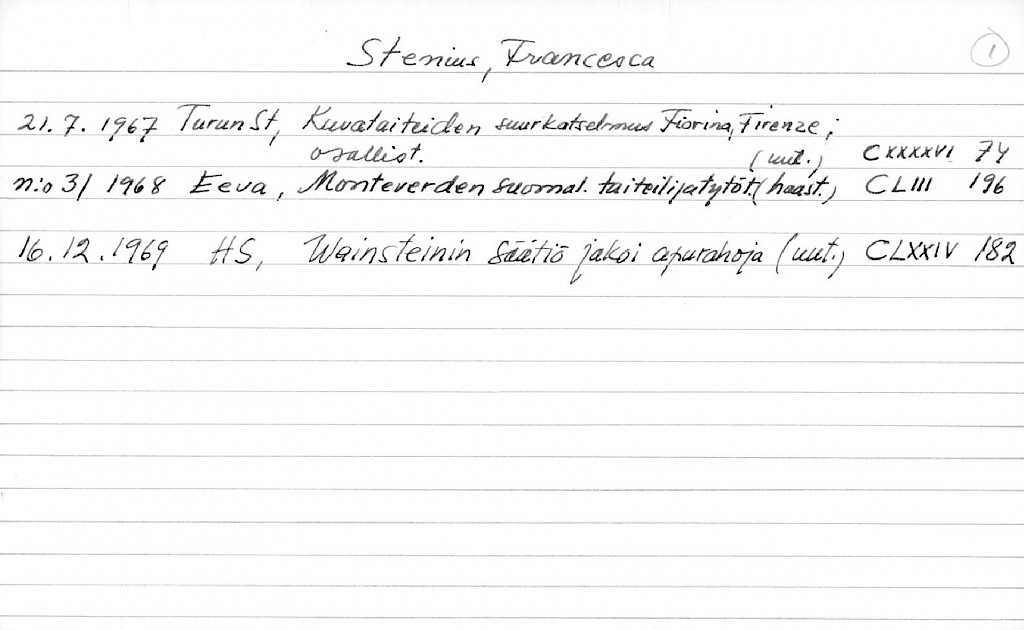 Stenius, Francesca 1
21.7.1967 Turun St, Kuvataiteiden suurkatselmus Fiorina, Firenze;
osallist. (uut.) CXXXXVI 74
n:o 3/1968 Eeva, Monteverden suomal. taiteilijatytöt. (haast.) CLIII 196
16.12.1969 HS, Wainsteinin säätiö jakoi apurahoja (uut.) CLXXIV 182